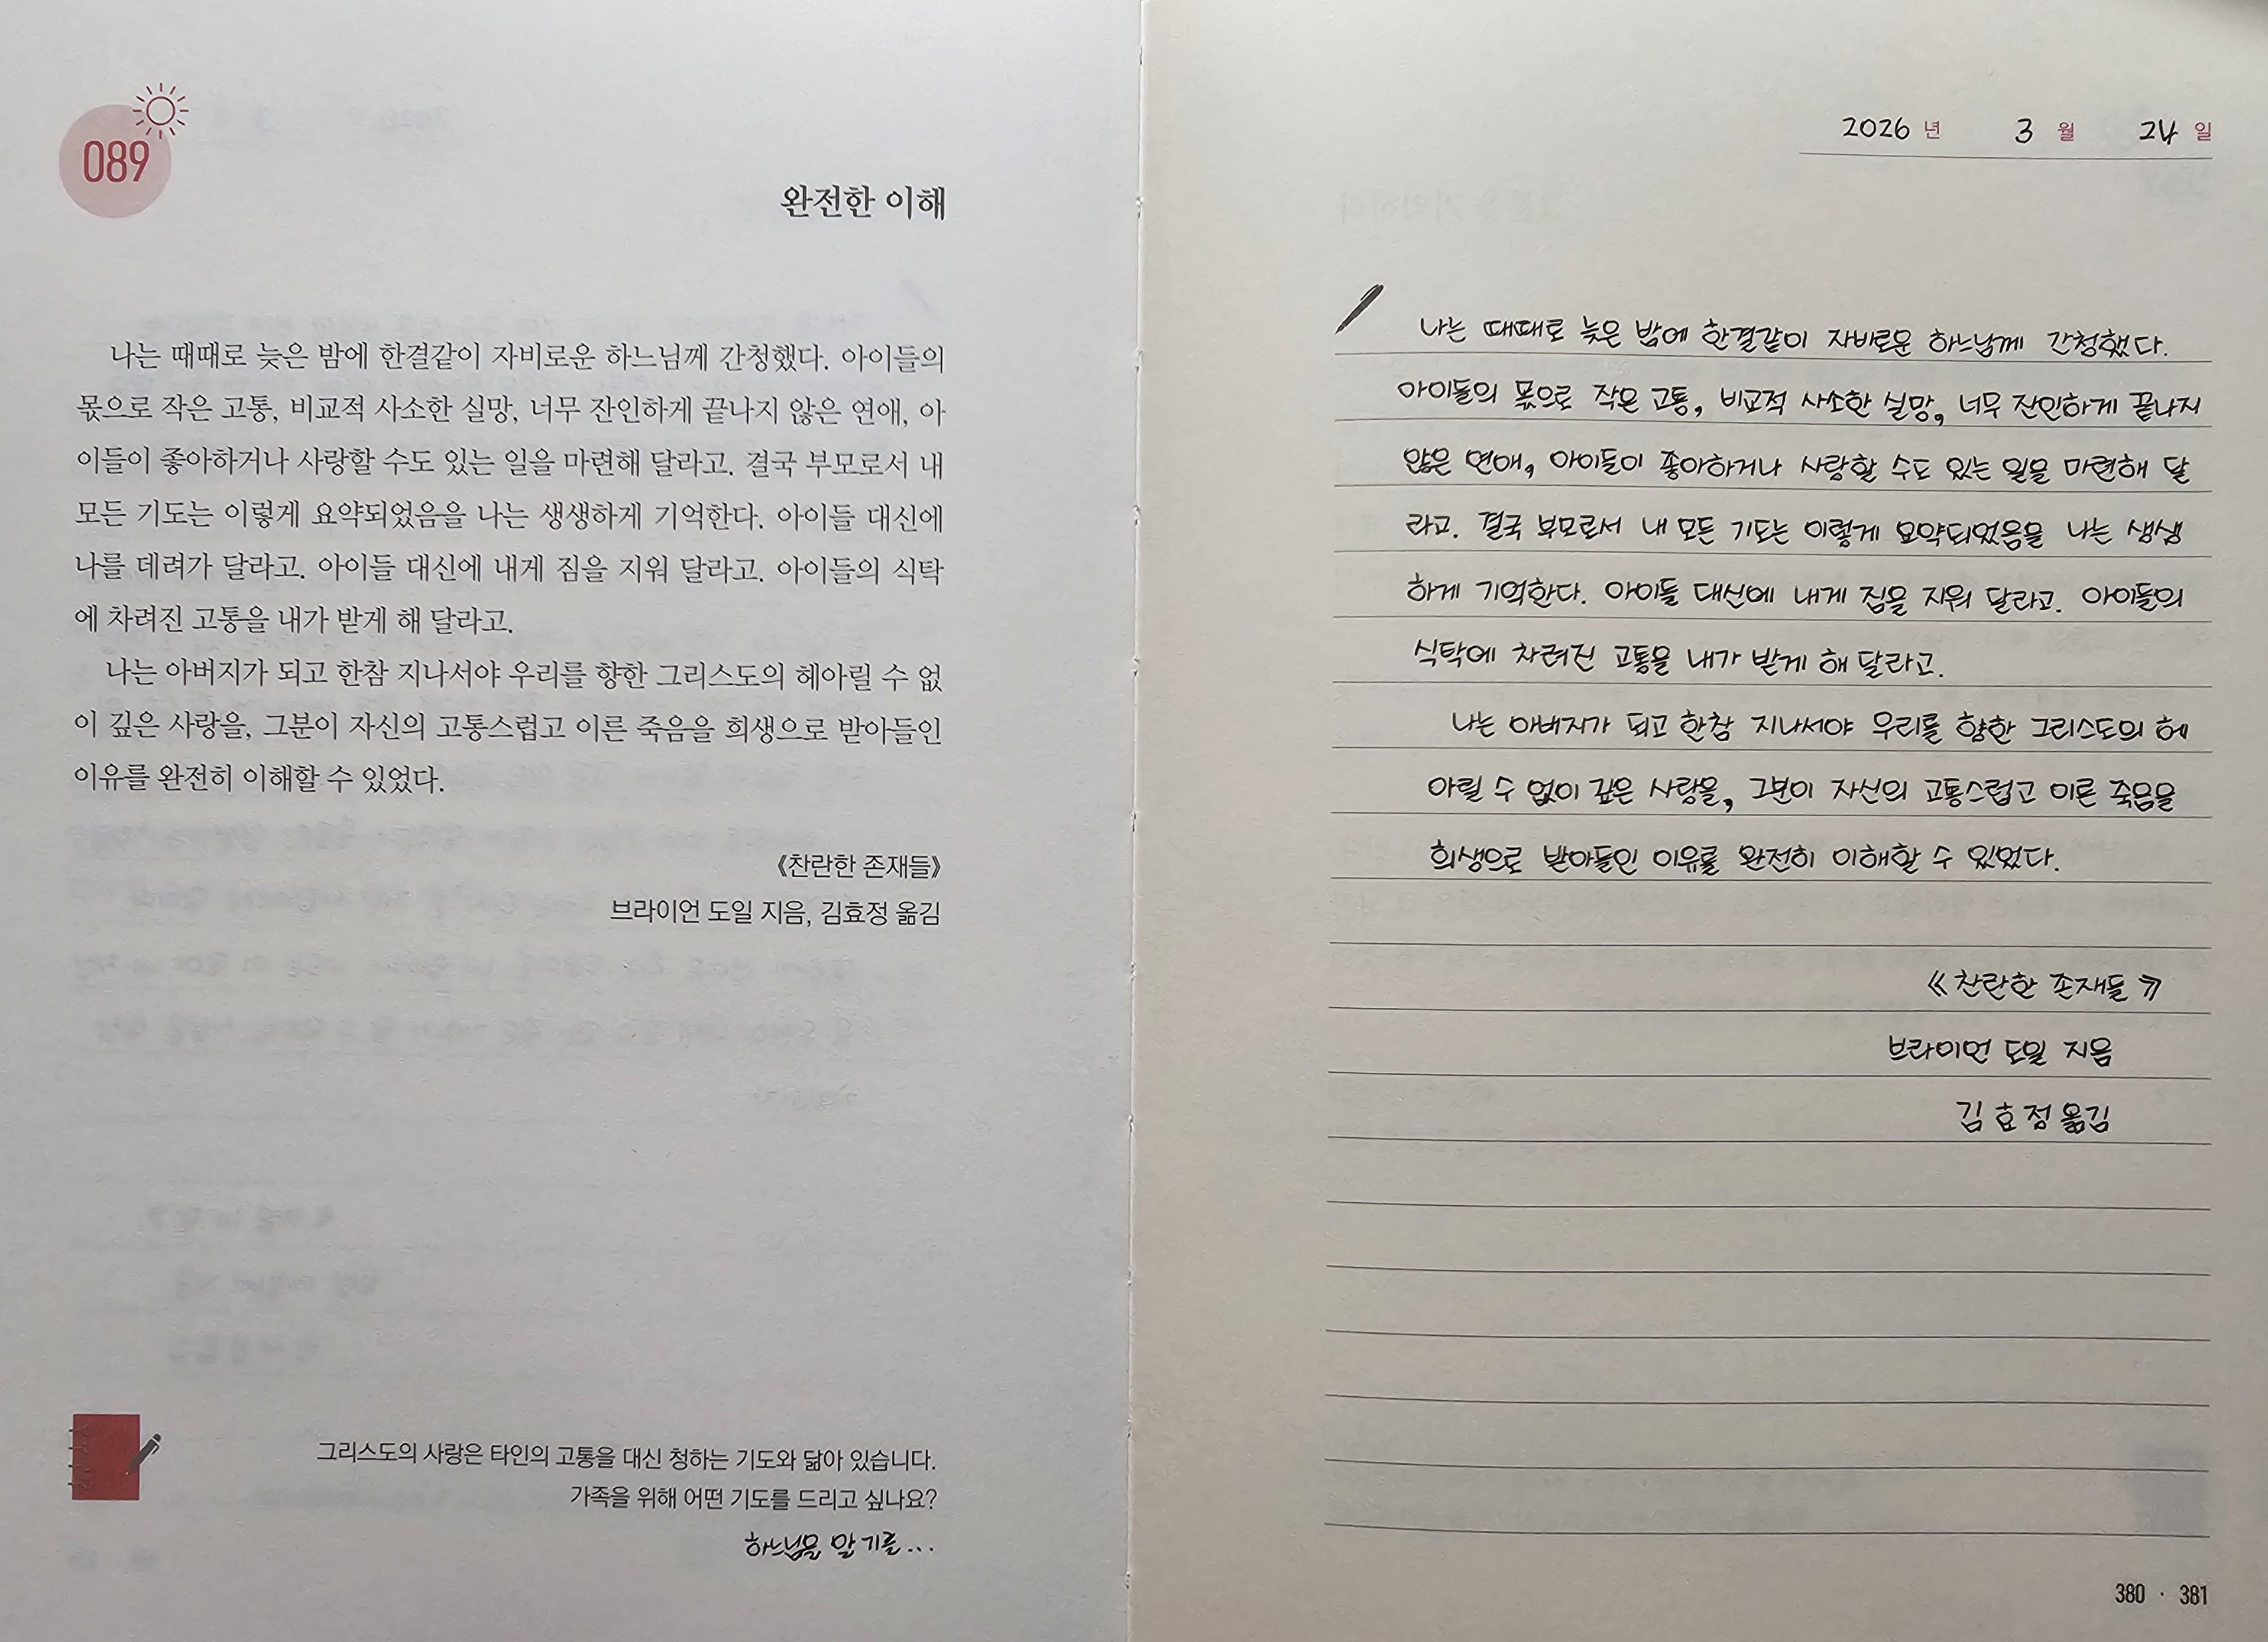 089
완전한 이해
나는 때때로 늦은 밤에 한결같이 자비로운 하느님께 간청했다. 아이들의
몫으로 작은 고통, 비교적 사소한 실망, 너무 잔인하게 끝나지 않은 연애, 아
이들이 좋아하거나 사랑할 수도 있는 일을 마련해 달라고. 결국 부모로서 내
모든 기도는 이렇게 요약되었음을 나는 생생하게 기억한다. 아이들 대신에
나를 데려가 달라고. 아이들 대신에 내게 짐을 지워 달라고. 아이들의 식탁
에 차려진 고통을 내가 받게 해 달라고.
나는 아버지가 되고 한참 지나서야 우리를 향한 그리스도의 헤아릴 수 없
이 깊은 사랑을, 그분이 자신의 고통스럽고 이른 죽음을 희생으로 받아들인
이유를 완전히 이해할 수 있었다.
《찬란한 존재들》
브라이언 도일 지음, 김효정 옮김
그리스도의 사랑은 타인의 고통을 대신 청하는 기도와 닮아 있습니다.
가족을 위해 어떤 기도를 드리고 싶나요?
하느님을 알기를...
2026 년 3 월 24 일
나는 때때로 늦은 밤에 한결같이 자비로운 하느님께 간청했다.
아이들의 몫으로 작은 고통, 비교적 사소한 실망, 너무 잔인하게 끝나지
않은 연애, 아이들이 좋아하거나 사랑할 수도 있는 일을 마련해 달
라고. 결국 부모로서 내 모든 기도는 이렇게 요약되었음을 나는 생생
하게 기억한다. 아이들 대신에 내게 짐을 지워 달라고. 아이들의
식탁에 차려진 고통을 내가 받게 해 달라고.
나는 아버지가 되고 한참 지나서야 우리를 향한 그리스도의 헤
아릴 수 없이 깊은 사랑을, 그분이 자신의 고통스럽고 이른 죽음을
희생으로 받아들인 이유를 완전히 이해할 수 있었다.
《찬란한 존재들》
브라이언 도일 지음
김효정 옮김
380 · 381